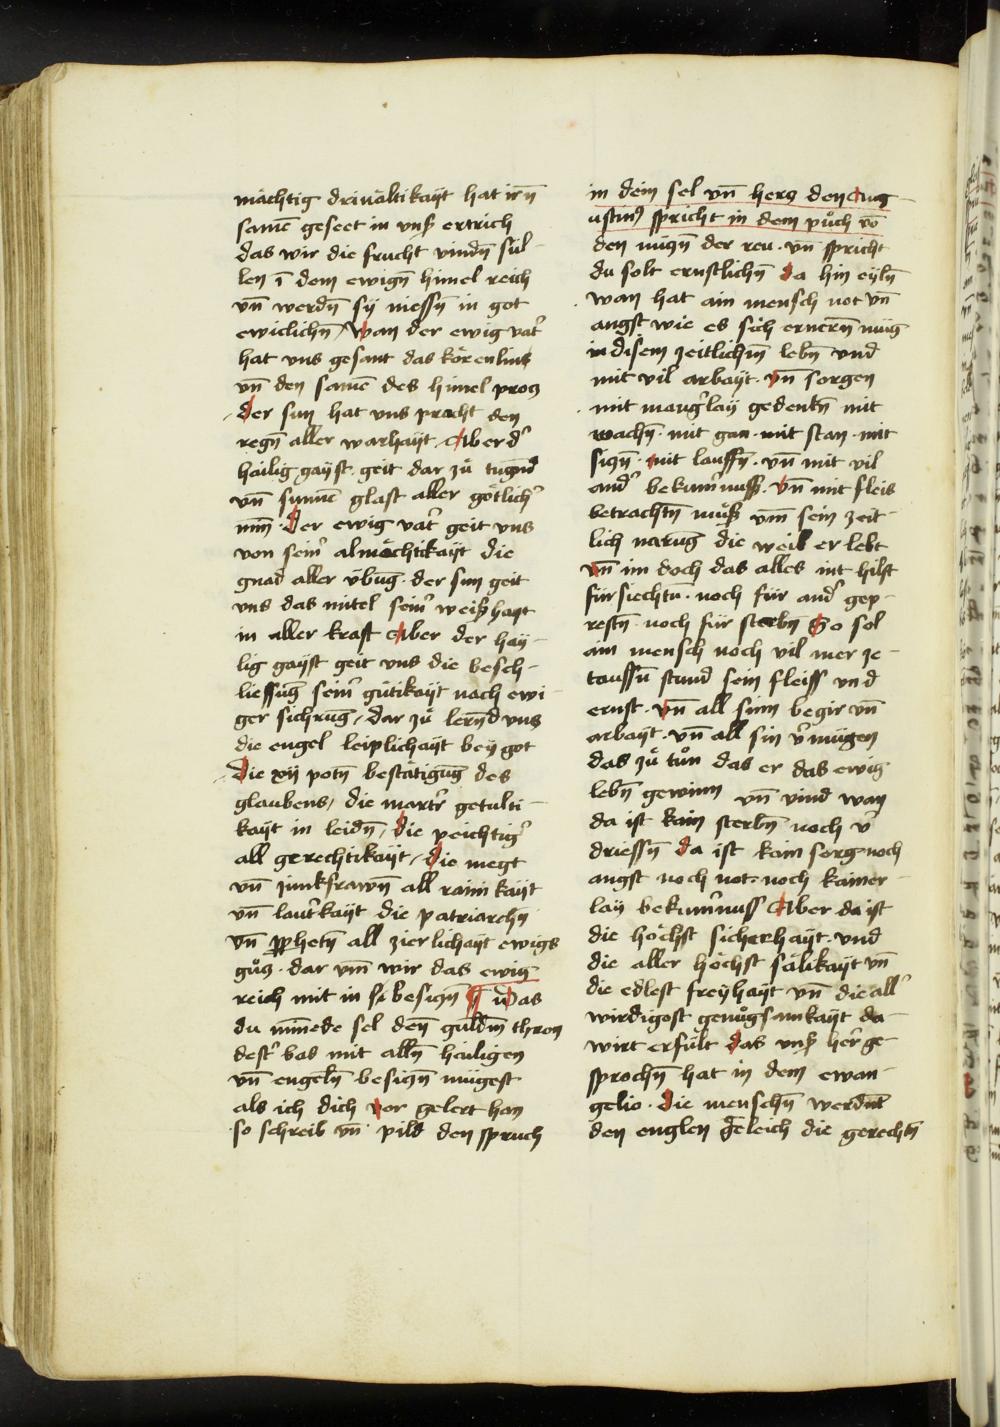 mächtig driuältikaÿt hat irn̄
samē geseet in vnß ertrich
das wir die frucht vindn̄ sül-
len ī dem ewign̄ himel reich
vn̄ werdn̄ sÿ niessn̄ in got
ewiclichn̄ / Wan der ewig vat͛
hat vns gesant das körenlins
vn̄ den samē des himel procz
der sun hat vns pracht den
regn̄ aller warhaÿt / Aber d͛
hailig gaÿst geit dar zuͦ tugnd
vn̄ sunnē glast aller götlich͛
mīn · Der ewig vat͛ geit vns
von sein͛ almächtikaÿt die
gnad aller v̈būg · der sun geit
vns das mitel sein͛ weißhaÿt
in aller kraft Aber der haÿ-
lig gaÿst geit vns die besch-
liessūg sein͛ gütikaÿt nach ewi
ger sichrūg / dar zuͦ lernd vns
die engel leiplichaÿt beÿ got
Die xij potn̄ bestätigūg des
glaubens / die martr͛ getulti-
kaÿt in leidn̄ / die peichtig͛
all gerechtikaÿt / die megt
vn̄ junkfrawn̄ all rainikaÿt
vn̄ laut͛kaÿt die patriarchn̄
vn̄ pphetn̄ all zierlichaÿt ewigs
guͦcz · dar vm̄ wir das ewig
reich mit in besiczn̄ ¶ Das
du mīnede sel den̄ guldin̄ thron
dest͛ bas mit alln̄ hailigen
vn̄ engeln̄ besiczn̄ mügest
als ich dich vor gelert han
so schreib vn̄ pild den spruch
in dein sel vn̄ hercz den Aug
ustin͛ spricht in dem puͦch vō
den nüczn̄ der reu · vn̄ spricht
du solt ernstlichn̄ da hin eÿln̄
wan hat ain mensch not vn̄
angst wie es sich ernern̄ müg
in disem zeitlichm̄ lebn̄ vnd
mit vil arbaÿt · vn̄ sorgen
mit mang͛laÿ gedenkn̄ mit
wachn̄ · mit gan · mit stan · mit
siczn̄ · mit lauffn̄ · vn̄ mit vil
and͛ bekum͛nuß · vn̄ mit fleis
betrachtn̄ muͦß vm̄ sein zeit-
lich narūg die weil er lebt
vn̄ im doch das alles nit hilft
für siechtū · noch für and͛ gep-
restn̄ noch für sterbn̄ So sol
ain mensch noch vil mer ze-
taussn̄ stund sein fleiss vnd
ernst · vn̄ all sinn begir vn̄
arbaÿt · vn̄ all sin v͛mügen
das zuͦ tuͦn das er das ewig
lebn̄ gewinn vn̄ vind wan
da ist kain sterbn̄ noch v͛
driessn̄ da ist kain sorg · noch
angst noch not · noch kainer-
laÿ bekum͛nuss Aber da ist
die höchst sicherhaÿt · vnd
die aller höchst sälikaÿt vn̄
die edlest freÿhaÿt vn̄ die all͛
wirdigost genuͦgsamkaÿt da-
wirt erfült das vnß her͛ ge-
sprochn̄ hat in dem ewan-
gelio · Die menschn̄ werdnt
den englen geleich die gerechtn̄